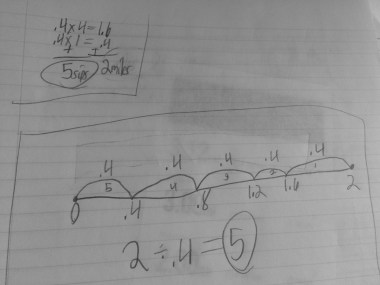 .4x4=1.6
.4x1=.4
+ +
5sips 2miles
.4 .4 .4 .4 .4
5 4 3 2 1
0 .4 .8 1.2 1.6 2
2÷.4=5